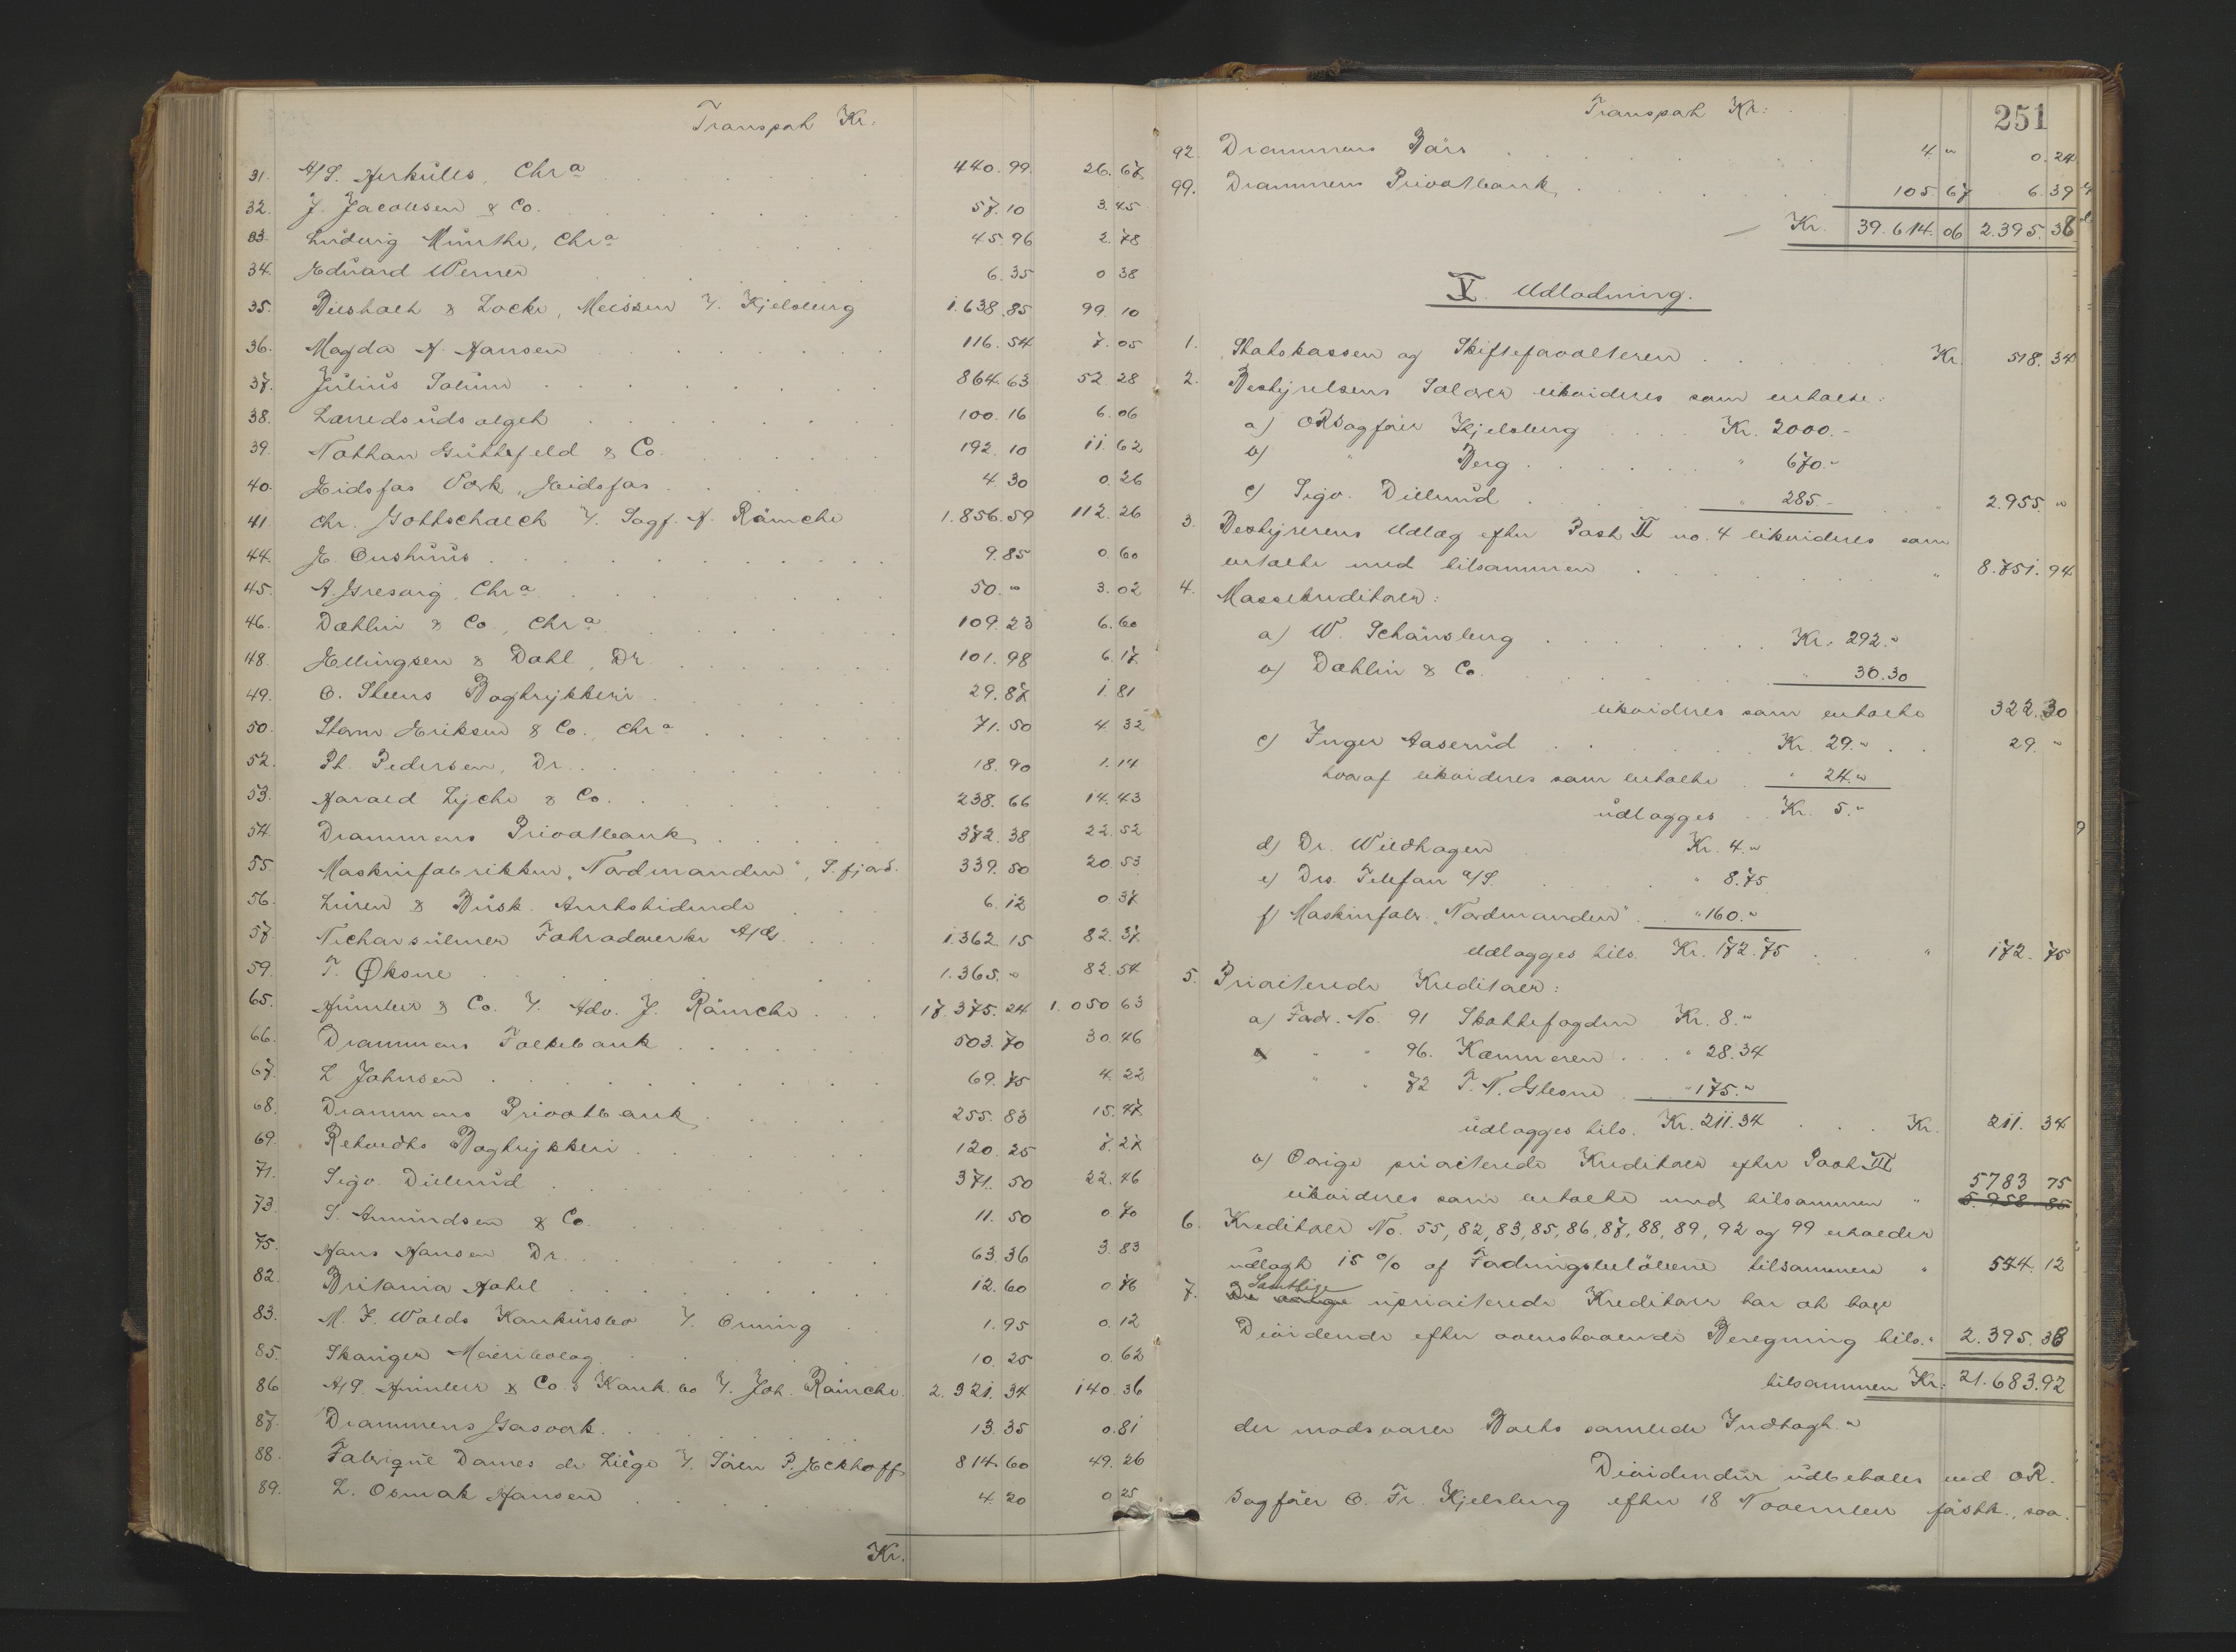 Transport Kr.
31. A/S. Herkules, Chr.a 440.99 26.67
32. J. Jacobsen & Co. 57.10 3.45
33. Ludvig Münthe, Chr.a 45.96 2.78
34. Edvard Werner 6.35 0 38
35. & Locke, Meissen v. Kjelsberg 1.638.85 99.10
36. Magda H. Hansen 116.54 7.05
37. Julius Solum 864.63 52 28
38. Lærredsudsalget 100.16 6.06
39. Nathan Guttfeld & Co. 192.10 11.62
40. Eidsfos Værk, Eidsfos 4.30 0.26
41 Chr. Gottschalch v. Sagf. H. Römcke 1.856.59 112.26
44. E. Onshuus 9.85 0.60
45. A. Gresvig, Chr.a 50." 3.02
46. Dæhlin & Co., Chr.a 109.23 6.60
48. Ellingsen & Dahl, Dr. 101.98 6.17
49. O. Steens Bogtrykkeri 29.87 1.81
50. Storm Eriksen & Co., Chr.a 71.50 4.32
52. Th. Pedersen, Dr. 18.90 1.14
53. Harald Lyche & Co. 238.66 14.43
54. Drammens Privatbank 372.38 22.52
55. Maskinfabrikken „Nordmanden", S.fjord. 339.50 20.53
56. Busk. Amtstidende 6.12 0 37
57. Necharsulmer Fahradwerke A/G. 1.362.15 82.37
59. T. Øksne 1.365." 82.54
65. Humber & Co. v. Adv. J. Römcke 17.375.24 1.050 63
66. Drammens Folkebank 503.70 30.46
67. L Johnsen 69.75 4.22
68. Drammens Privatbank 255.83 15.47
69. Bogtrykkeri 120.25 7.27
71. Sigv. Dillerud 371.50 22.46
73. S. Amundsen & Co. 11.50 0 70
75. Hans Hansen Dr. 63.36 3.83
82. Britania Hotel 12.60 0.76
83. M. F. Wolds Konkursbo v. Orning 1.95 0.12
85. Skauger Meieribolag 10.25 0.62
86 A/S. Humber & Co.s Konk.bo v. Joh. Römcke. 2.321.34 140.36
87. Drammens Gasværk. 13.35 0.81
88. Fabrique Dames de Liège v. Sören P. Eckhoff 814.60 49.26
89. L. Osmak Hansen 4.20 0 25
Kr.
Transport Kr: 251
92. Drammens Börs 4 " 0.24
99. Drammens Privatbank 105 67 6.39
Kr. 39.614.06 2.395.38
V. Udlodning.
1. Statskassen og Skifteforvalteren Kr. 518.34
2. Bestyrelsens Salær likvideres som erholdt:
a) ORSagförer Kjelsberg Kr. 2000.-
b) " Berg " 670.-
c) Sigv. Dillerud " 285.- " 2.955."
3. Bestyrerens Udlæg efter Post II no. 4 likvideres som
erholdt med tilsammen " 8.751.94
4. Massekreditorer:
a) W. Schönsberg Kr. 292."
b) Dæhlin & Co. " 30.30
likvideres som erholdt 322.30
c) Inger Aaserud Kr. 29." 29."
hvoraf likvideres som erholdt " 24."
udlægges Kr. 5."
d) Dr. Wildhagen Kr. 4."
e) Drs. Telefon A/S. " 8.75
f) Maskinfabr. „Nordmanden" " 160."
Udlægges tils. Kr. 172.75 " 172.75
5. Prioriterede Kreditorer:
a) Fordr. No. 91 Skattefogden Kr. 8."
" " 96. Kæmneren " 28.34
" " 72 T. N. Glesne " 175."
udlægges tils. Kr. 211.34 Kr. 211.34
b) Øvrige prioriterede Kreditorer efter Post III
5783 75
likvideres som erholdt med tilsammen " 5.958 85
6. Kreditorer No. 55, 82, 83, 85, 86, 87, 88, 89, 92 og 99 erholder
udlagt 15 % af Fordringsbelöbene tilsammen " 544.12
Samtlige
7. De øvrige uprioriterede Kreditorer har at tage
Dividende efter ovenstaaende Beregning tils. " 2.395.38
tilsammen Kr: 21.683.92
der modsvarer Boets samlede Indtægt."
Dividenden udbetales ved OR.
Sagförer O. Fr. Kjelsberg efter 18 November förstk., saa